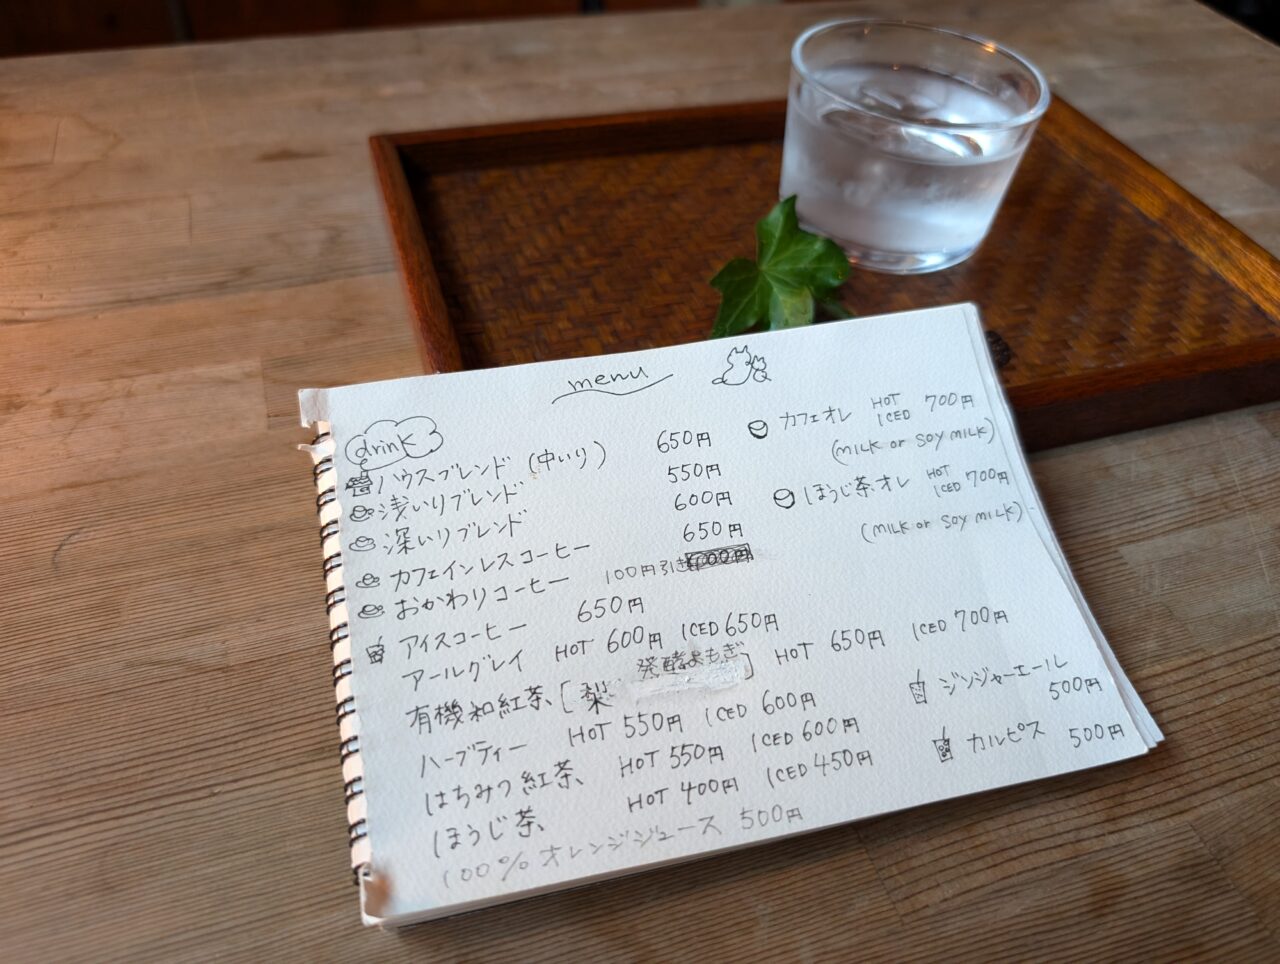 menu
drink
ハウスブレンド (中いり) 650円
浅いりブレンド 550円
深いりブレンド 600円
カフェインレスコーヒー 650円
おかわりコーヒー 100円引き
アイスコーヒー 650円
アールグレイ HOT 600円 ICED 650円
有機和紅茶 [梨 発酵よもぎ] HOT 650円 ICED 700円
ハーブティー HOT 550円 ICED 600円
はちみつ紅茶 HOT 550円 ICED 600円
ほうじ茶 HOT 400円 ICED 450円
100% オレンジジュース 500円
カフェオレ HOT ICED 700円
(MILK or SOY MILK)
ほうじ茶オレ HOT ICED 700円
(MILK or SOY MILK)
ジンジャーエール
500円
カルピス 500円